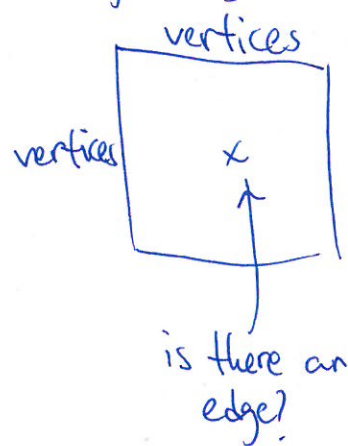 vertices
vertices
x
is there an
edge?